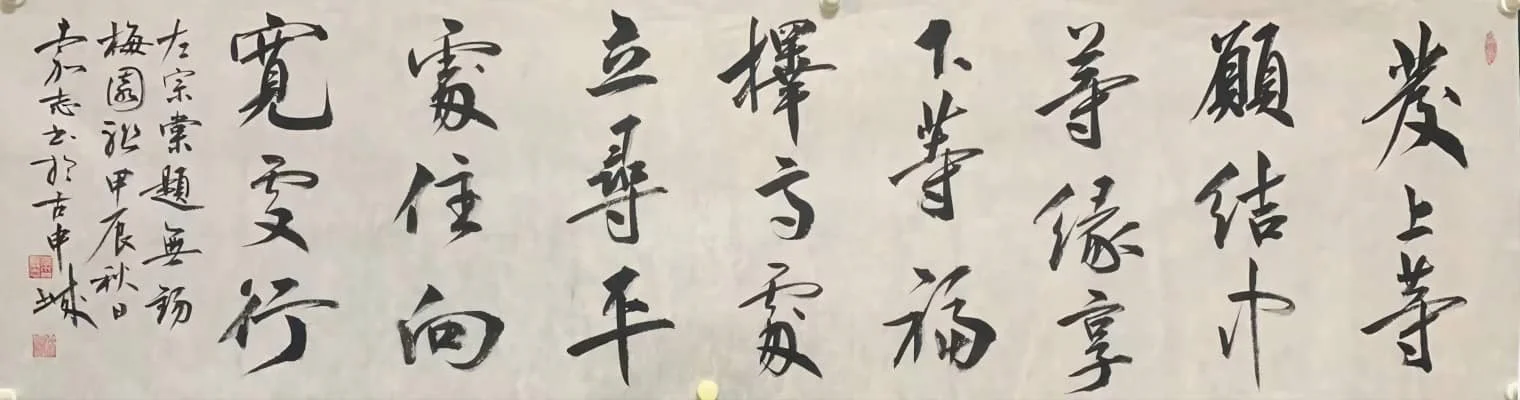 發上等
願結中
等緣享
下等福
擇高處
立尋平
處住向
寬處行
左宗棠題無錫
梅園聯甲辰秋日
嘉志书於古申城